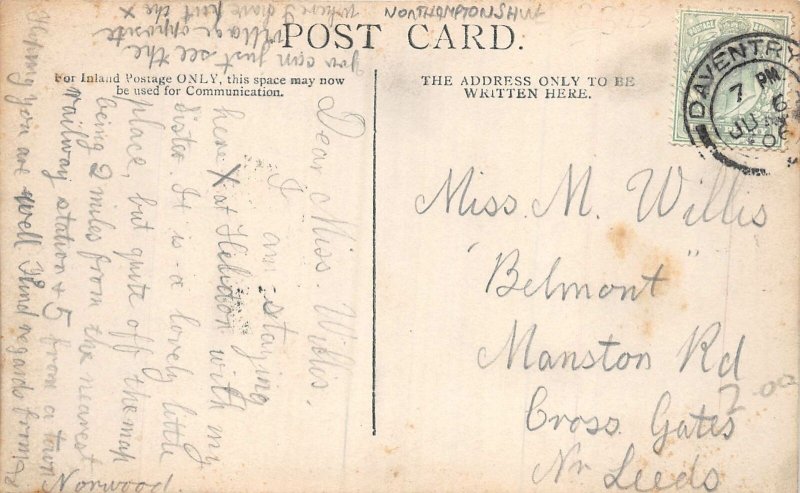 POST CARD.
For Inland Postage ONLY, this space may now
be used for Communication.
THE ADDRESS ONLY TO BE
WRITTEN HERE.
DAVENTRY
7 PM
JU 6
06
Miss. M. Willis
"Belmont"
Manston Rd
Cross Gates
Nr Leeds
2-00
Dear Miss. Willis.
I am staying
here X at with my
sister. It is a lovely little
place, but quite off the map
being 2 miles from the nearest
railway station & 5 from a town
Hoping you are well Kind regards from
Norwood.
you can just see the
village opposite
where I have put the X